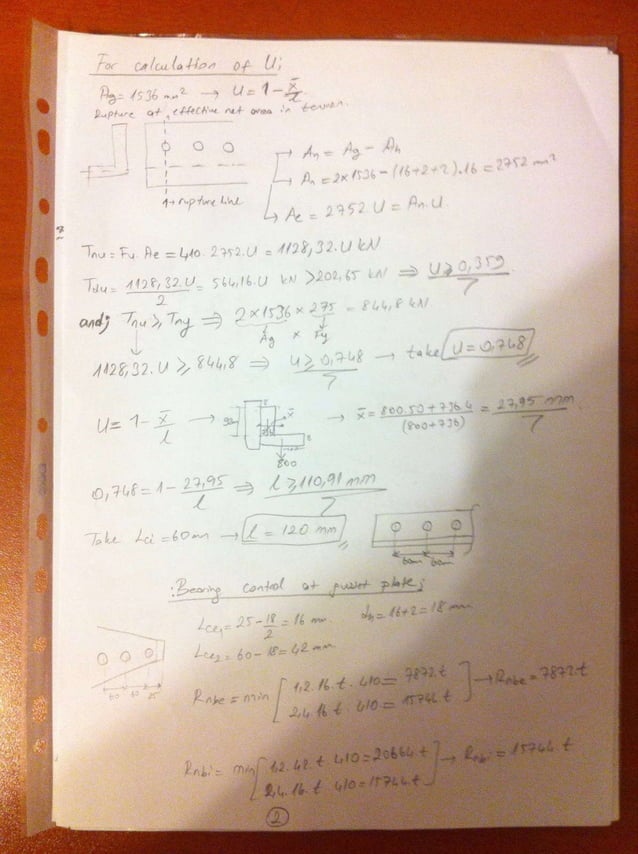 For calculation of U;
Ag = 1536 mm² → U = 1 - x̄/l
Rupture at effective net area in tension.
→ An = Ag - Ah
→ An = 2×1536 - (16+2+2).16 = 2752 mm²
→ Ae = 2752.U = An.U
→ rupture line
Tnu = Fu.Ae = 410.2752.U = 1128,32.U kN
Tdu = 1128,32.U/2 = 564,16.U kN > 202,65 kN ⇒ U ≥ 0,359
and; Tnu ≥ Tny ⇒ 2×1536 × 275 = 844,8 kN
Ag × Fy
1128,32.U ≥ 844,8 ⇒ U ≥ 0,748 → take U = 0,748
U = 1 - x̄/l → x̄ → x̄ = 800.50+736.4/(800+736) = 27,95 mm
736
8
800
0,748 = 1 - 27,95/l ⇒ l ≥ 110,91 mm
Take Lci = 60mm → l = 120 mm
60mm 60mm
Bearing control at gusset plate;
Lce1 = 25 - 18/2 = 16 mm dh = 16+2 = 18 mm
Lce2 = 60 - 18 = 42 mm
60 60 25
Rnbe = min [1,2.16.t.410 = 7872.t
2,4.16.t.410 = 15744.t] → Rnbe = 7872.t
Rnbi = min [1,2.42.t.410 = 20664.t
2,4.16.t.410 = 15744.t] → Rnbi = 15744.t
2